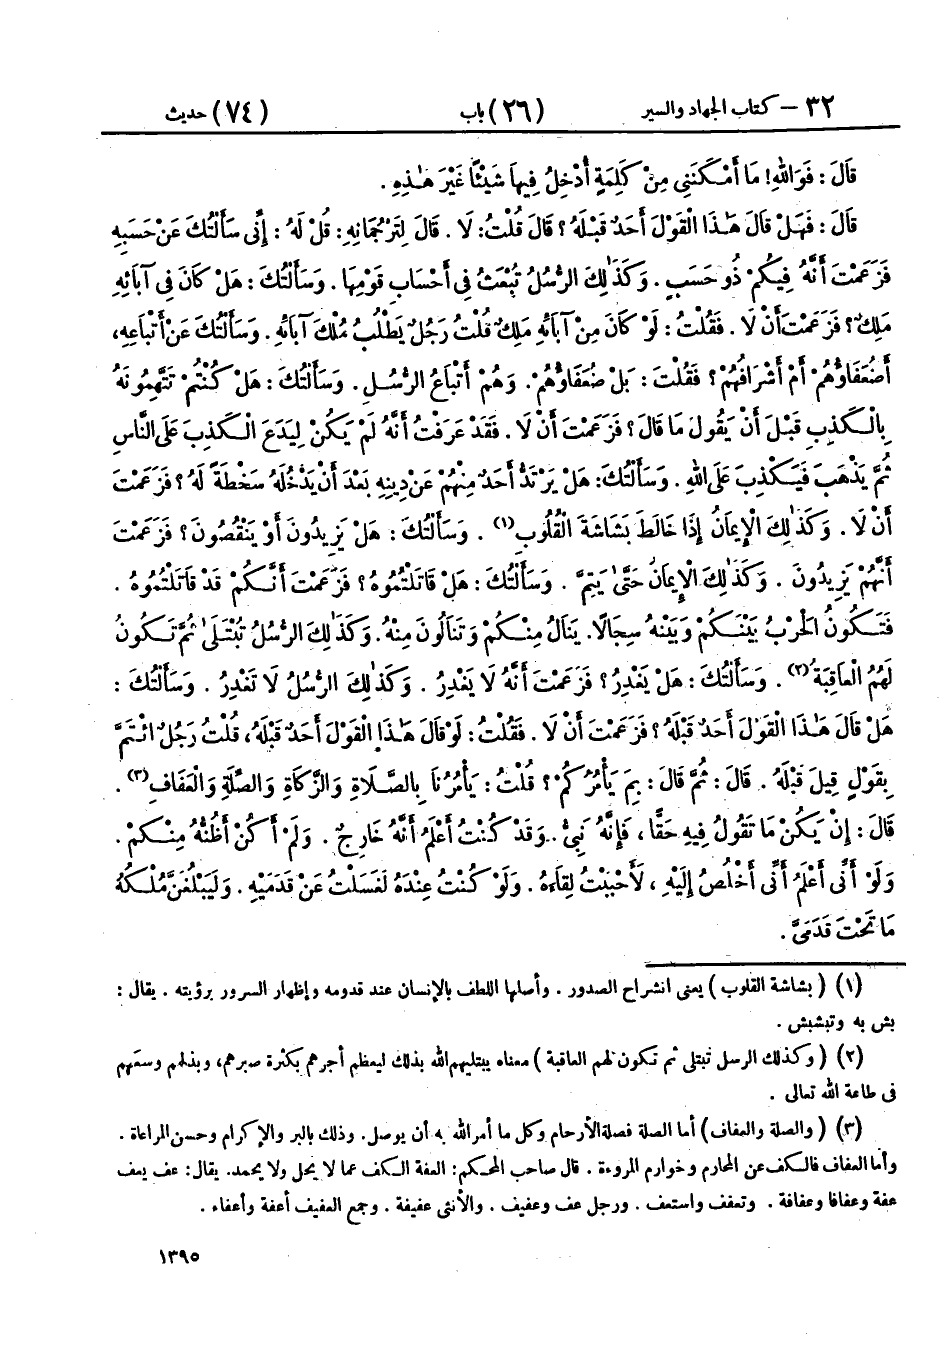 ٣٢ – كتاب الجهاد والسير (٢٦) باب (٧٤) حديث
قَالَ : فَوَاللهِ! مَا أَمْكَنَنِي مِنْ كَلِمَةٍ أُدْخِلُ فِيهَا شَيْئًا غَيْرَ هَٰذِهِ .
قَالَ : فَهَلْ قَالَ هَٰذَا الْقَوْلَ أَحَدٌ قَبْلَهُ ؟ قَالَ قُلْتُ: لَا . قَالَ لِتَرْجُمَانِهِ: قُلْ لَهُ : إِنِّي سَأَلْتُكَ عَنْ حَسَبِهِ
فَزَعَمْتَ أَنَّهُ فِيكُمْ ذُو حَسَبٍ . وَكَذَٰلِكَ الرُّسُلُ تُبْعَثُ فِي أَحْسَابِ قَوْمِهَا . وَسَأَلْتُكَ : هَلْ كَانَ فِي آبَائِهِ
مَلِكٌ؟ فَزَعَمْتَ أَنْ لَا . فَقُلْتُ : لَوْ كَانَ مِنْ آبَائِهِ مَلِكٌ قُلْتُ رَجُلٌ يَطْلُبُ مُلْكَ آبَائِهِ . وَسَأَلْتُكَ عَنْ أَتْبَاعِهِ،
أَضُعَفَاؤُهُمْ أَمْ أَشْرَافُهُمْ ؟ فَقُلْتَ : بَلْ ضُعَفَاؤُهُمْ. وَهُمْ أَتْبَاعُ الرُّسُلِ . وَسَأَلْتُكَ : هَلْ كُنْتُمْ تَتَّهِمُونَهُ
بِالْكَذِبِ قَبْلَ أَنْ يَقُولَ مَا قَالَ ؟ فَزَعَمْتَ أَنْ لَا . فَقَدْ عَرَفْتُ أَنَّهُ لَمْ يَكُنْ لِيَدَعَ الْكَذِبَ عَلَى النَّاسِ
ثُمَّ يَذْهَبَ فَيَكْذِبَ عَلَى اللهِ . وَسَأَلْتُكَ: هَلْ يَرْتَدُّ أَحَدٌ مِنْهُمْ عَنْ دِينِهِ بَعْدَ أَنْ يَدْخُلَهُ سَخْطَةً لَهُ ؟ فَزَعَمْتَ
أَنْ لَا . وَكَذَٰلِكَ الْإِيمَانُ إِذَا خَالَطَ بَشَاشَةَ الْقُلُوبِ (١) . وَسَأَلْتُكَ : هَلْ يَزِيدُونَ أَوْ يَنْقُصُونَ ؟ فَزَعَمْتَ
أَنَّهُمْ يَزِيدُونَ . وَكَذَٰلِكَ الْإِيمَانُ حَتَّىٰ يَتِمَّ . وَسَأَلْتُكَ : هَلْ قَاتَلْتُمُوهُ ؟ فَزَعَمْتَ أَنَّكُمْ قَدْ قَاتَلْتُمُوهُ .
فَتَكُونُ الْحَرْبُ بَيْنَكُمْ وَبَيْنَهُ سِجَالًا. يَنَالُ مِنْكُمْ وَتَنَالُونَ مِنْهُ. وَكَذَٰلِكَ الرُّسُلُ تُبْتَلَىٰ ثُمَّ تَكُونُ
لَهُمُ الْعَاقِبَةُ (٢) . وَسَأَلْتُكَ : هَلْ يَغْدِرُ ؟ فَزَعَمْتَ أَنَّهُ لَا يَغْدِرُ . وَكَذَٰلِكَ الرُّسُلُ لَا تَغْدِرُ . وَسَأَلْتُكَ :
هَلْ قَالَ هَٰذَا الْقَوْلَ أَحَدٌ قَبْلَهُ ؟ فَزَعَمْتَ أَنْ لَا . فَقُلْتُ : لَوْ قَالَ هَٰذَا الْقَوْلَ أَحَدٌ قَبْلَهُ، قُلْتُ رَجُلٌ ائْتَمَّ
بِقَوْلٍ قِيلَ قَبْلَهُ . قَالَ : ثُمَّ قَالَ : بِمَ يَأْمُرُكُمْ ؟ قُلْتُ : يَأْمُرُنَا بِالصَّلَاةِ وَالزَّكَاةِ وَالصِّلَةِ وَالْعَفَافِ (٣) .
قَالَ : إِنْ يَكُنْ مَا تَقُولُ فِيهِ حَقًّا ، فَإِنَّهُ نَبِيٌّ . وَقَدْ كُنْتُ أَعْلَمُ أَنَّهُ خَارِجٌ . وَلَمْ أَكُنْ أَظُنُّهُ مِنْكُمْ .
وَلَوْ أَنِّي أَعْلَمُ أَنِّي أَخْلُصُ إِلَيْهِ ، لَأَحْبَبْتُ لِقَاءَهُ . وَلَوْ كُنْتُ عِنْدَهُ لَغَسَلْتُ عَنْ قَدَمَيْهِ . وَلَيَبْلُغَنَّ مُلْكُهُ
مَا تَحْتَ قَدَمَيَّ .
(١) ( بشاشة القلوب ) يعنى انشراح الصدور . وأصلها اللطف بالإنسان عند قدومه وإظهار السرور برؤيته . يقال :
بش به وتبشبش .
(٢) ( وكذلك الرسل تبتلى ثم تكون لهم العاقبة ) معناه يبتليهم الله بذلك ليعظم أجرهم بكثرة صبرهم، وبذلهم وسعهم
فى طاعة الله تعالى .
(٣) ( والصلة والعفاف ) أما الصلة فصلة الأرحام وكل ما أمر الله به أن يوصل. وذلك بالبر والإكرام وحسن المراعاة .
وأما العفاف فالكف عن المحارم وخوارم المروءة . قال صاحب المحكم: العفة الكف عما لا يحل ولا يحمد. يقال: عف يعف
عفة وعفافا وعفافة . وتعفف واستعف . ورجل عف وعفيف . والأنثى عفيفة . وجمع العفيف أعفة وأعفاء .
١٣٩٥